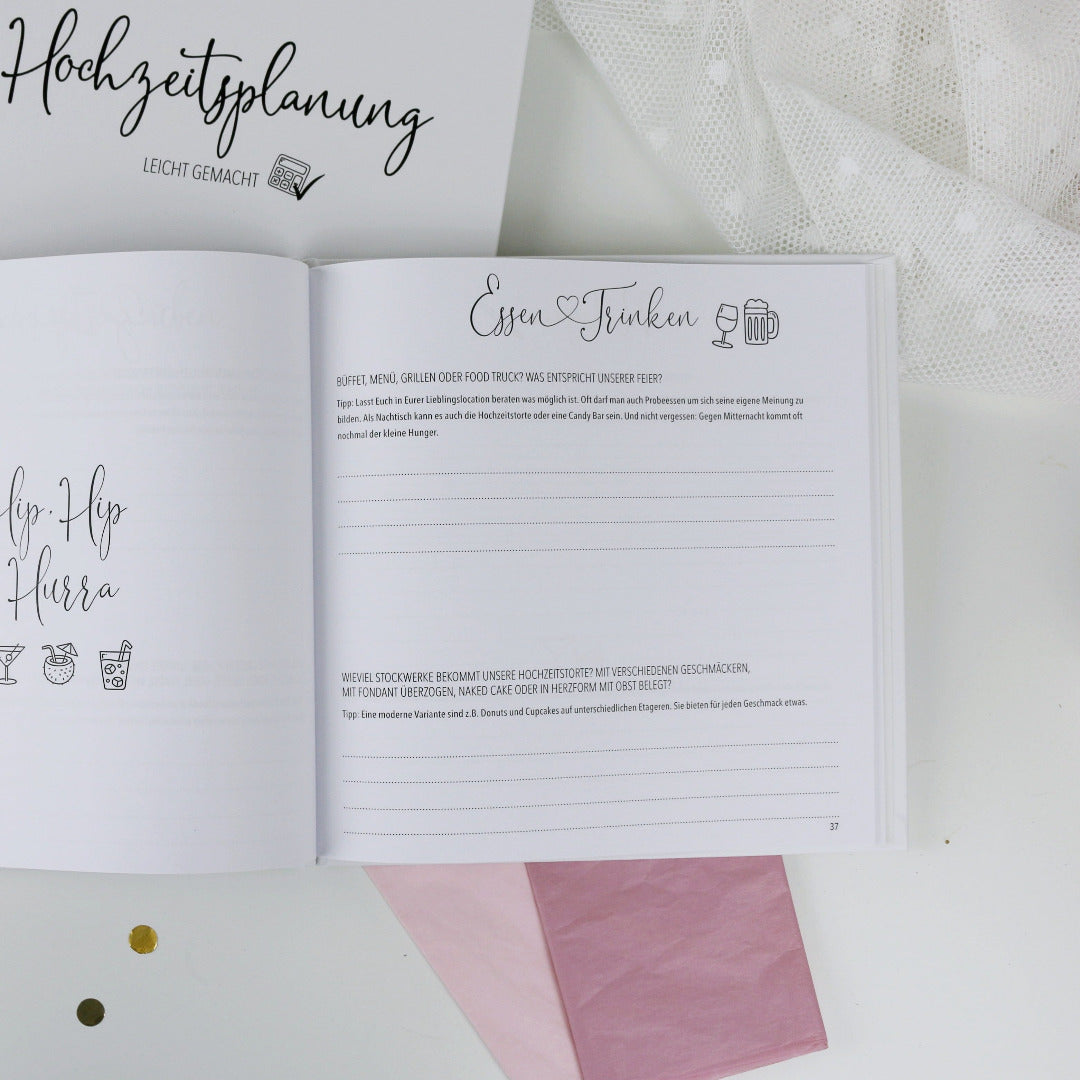 Hochzeitsplanung
LEICHT GEMACHT
Hip, Hip
Hurra
Essen Trinken
BÜFFET, MENÜ, GRILLEN ODER FOOD TRUCK? WAS ENTSPRICHT UNSERER FEIER?
Tipp: Lasst Euch in Eurer Lieblingslocation beraten was möglich ist. Oft darf man auch Probeessen um sich seine eigene Meinung zu
bilden. Als Nachtisch kann es auch die Hochzeitstorte oder eine Candy Bar sein. Und nicht vergessen: Gegen Mitternacht kommt oft
nochmal der kleine Hunger.
WIEVIEL STOCKWERKE BEKOMMT UNSERE HOCHZEITSTORTE? MIT VERSCHIEDENEN GESCHMÄCKERN,
MIT FONDANT ÜBERZOGEN, NAKED CAKE ODER IN HERZFORM MIT OBST BELEGT?
Tipp: Eine moderne Variante sind z.B. Donuts und Cupcakes auf unterschiedlichen Etageren. Sie bieten für jeden Geschmack etwas.
37